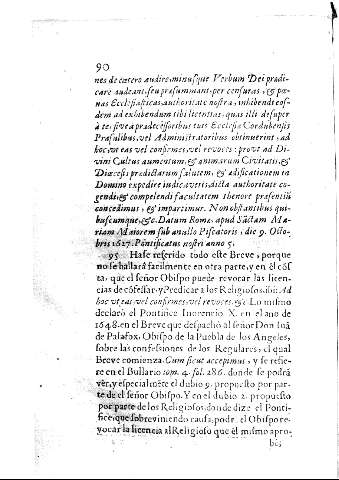 90
nes de cætero audire, minusque Verbum Dei prædi-
care audeant, seu præsummant, per censuras, & pœ-
nas Ecclesiasticas authoritate nostra, inhibendi eos-
dem ad exhibendum tibi licentias, quas illi desuper
à te, sive à prædecessoribus tuis Ecclesiæ Cordubensis
Præsulibus, vel Administratoribus obtinuerint, ad
hoc, ut eas vel confirmes, vel revoces: prout ad Di-
vini Cultus aumentum, & animarum Civitatis, &
Diœcesis prædictarum salutem, & ædificationem in
Domino expedire indicaveris, dicta authoritate co-
gendi, & compelendi facultatem thenore præsentiũ
concedimus, & impartimur. Non obstantibus qui-
buscumque, &c. Datum Romæ, apud Sãctam Ma-
riam Maiorem sub anullo Piscatoris, die 9. Octo-
bris 1627. Pontificatus nostri anno 5.
95 Hase referido todo este Breve, porque
no se hallarà facilmente en otra parte, y en èl cõs-
ta, que el señor Obispo puede revocar las licen-
cias de cõfessar, y Predicar a los Religiosos, ibi: Ad
hoc ut eas vel confirmes, vel revoces, &c. Lo mismo
declarò el Pontifice Inocencio X. en el año de
1648. en el Breve que despachò al señor Don Iuã
de Palafox, Obispo de la Puebla de los Angeles,
sobre las confessiones de los Regulares, el qual
Breve comienza, Cum sicut accepimus, y se refie-
re en el Bullario tom. 4. fol. 286. donde se podrà
vèr, y especialmẽte el dubio 9. propuesto por par-
te de el señor Obispo. Y en el dubio 2. propuesto
por parte de los Religiosos, donde dize el Ponti-
fice, que sobreviniendo causa, podr. el Obispo re-
vocar la licencia al Religioso que èl mismo apro-
bò;